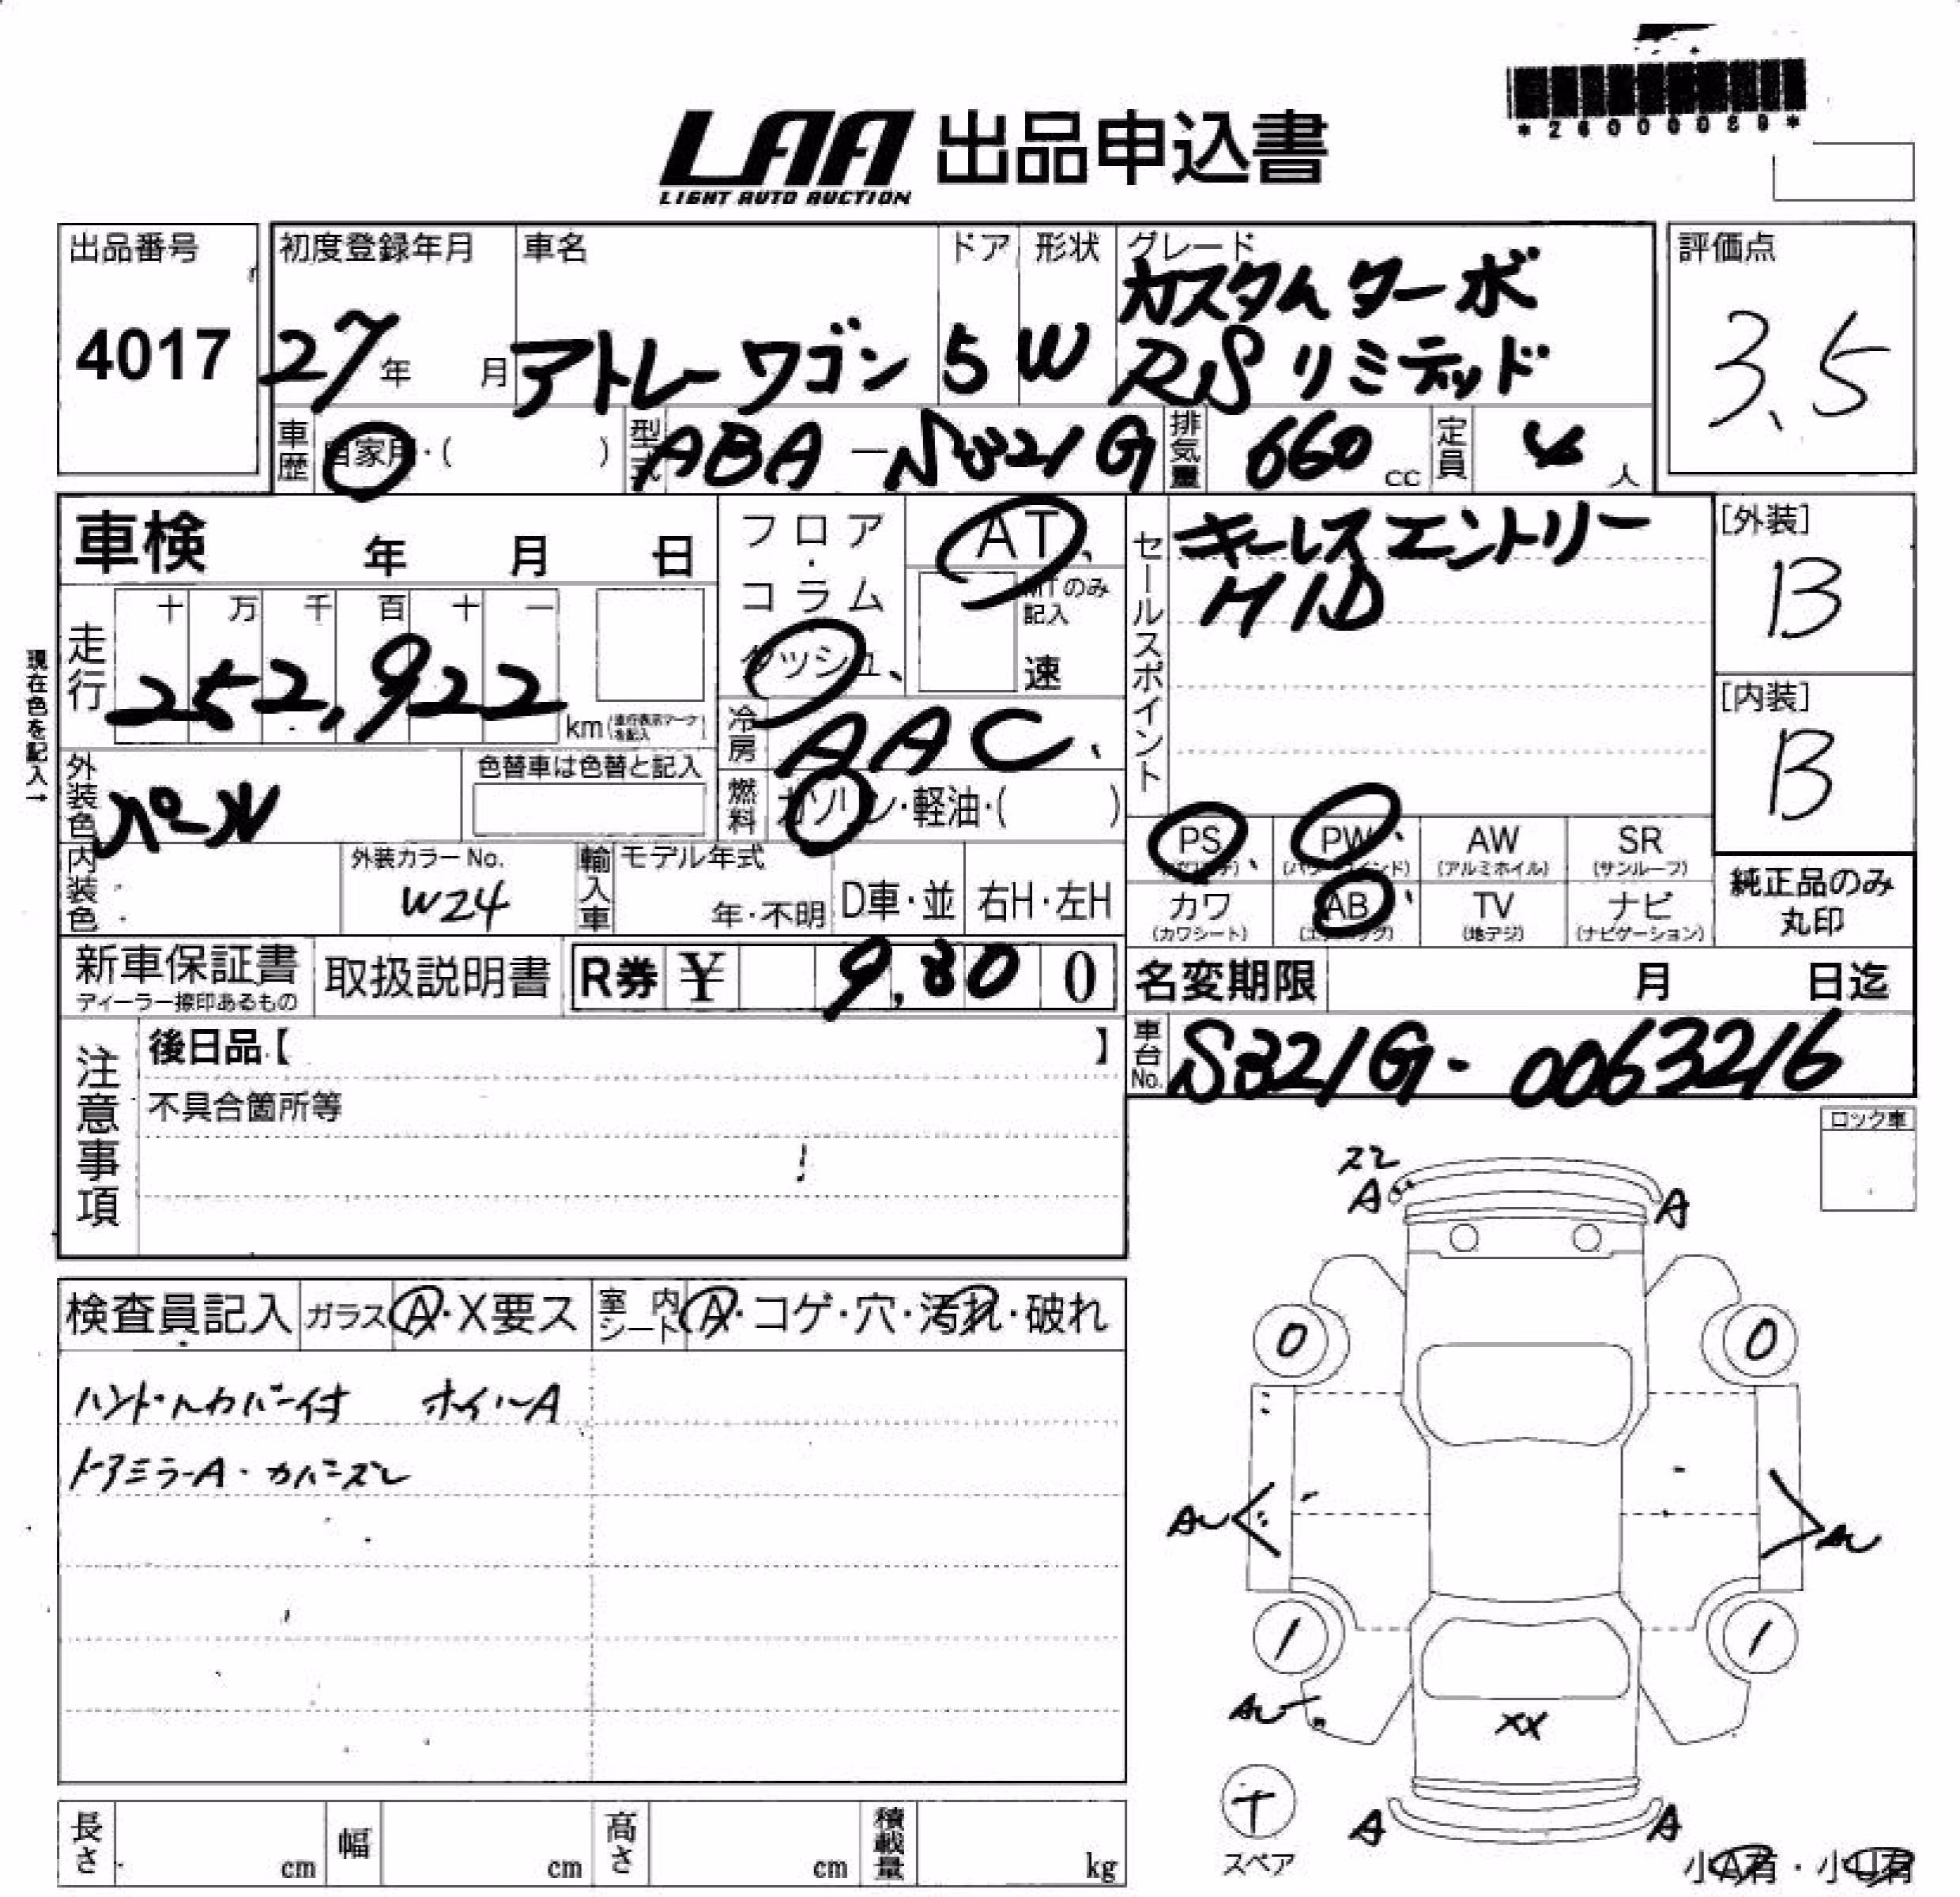 *26000089*
LAA 出品申込書
LIGHT AUTO AUCTION
出品番号
4017
初度登録年月
27年 月
車名
アトレーワゴン
ドア
5
形状
W
グレード
カスタムターボ
RSリミテッド
評価点
3.5
車歴 自家用・( )
型式 ABA-S321G
排気量 660 cc
定員 4 人
車検 年 月 日
フロア・コラム
ダッシュ
AT
MTのみ記入
速
セールスポイント
キーレスエントリー
HID
[外装]
B
[内装]
B
現在色を記入→
走行
十 万 千 百 十 一
252,922
km (走行表示マークを記入)
冷房 AAC
燃料 ガソリン・軽油・( )
外装色 パール
色替車は色替と記入
内装色
外装カラーNo.
W24
輸入車
モデル年式
年・不明
D車・並
右H・左H
PS (パワステ)
PW (パワーウインド)
AW (アルミホイル)
SR (サンルーフ)
カワ (カワシート)
AB (エアバッグ)
TV (地デジ)
ナビ (ナビゲーション)
純正品のみ
丸印
新車保証書
ディーラー捺印あるもの
取扱説明書
R券 ¥ 9,800
名変期限 月 日迄
車台No. S321G-0063216
注意事項
後日品【 】
不具合箇所等
ロック車
検査員記入
ガラス A・X要ス
室内シート A・コゲ・穴・汚れ・破れ
ハンドルカバー付 ホイルA
ドアミラーA・カバーズレ
ズレ
A A
0 0
AU AU
1 1
AU
XX
千
スペア
A A
小A有・小U有
長さ cm
幅 cm
高さ cm
積載量 kg